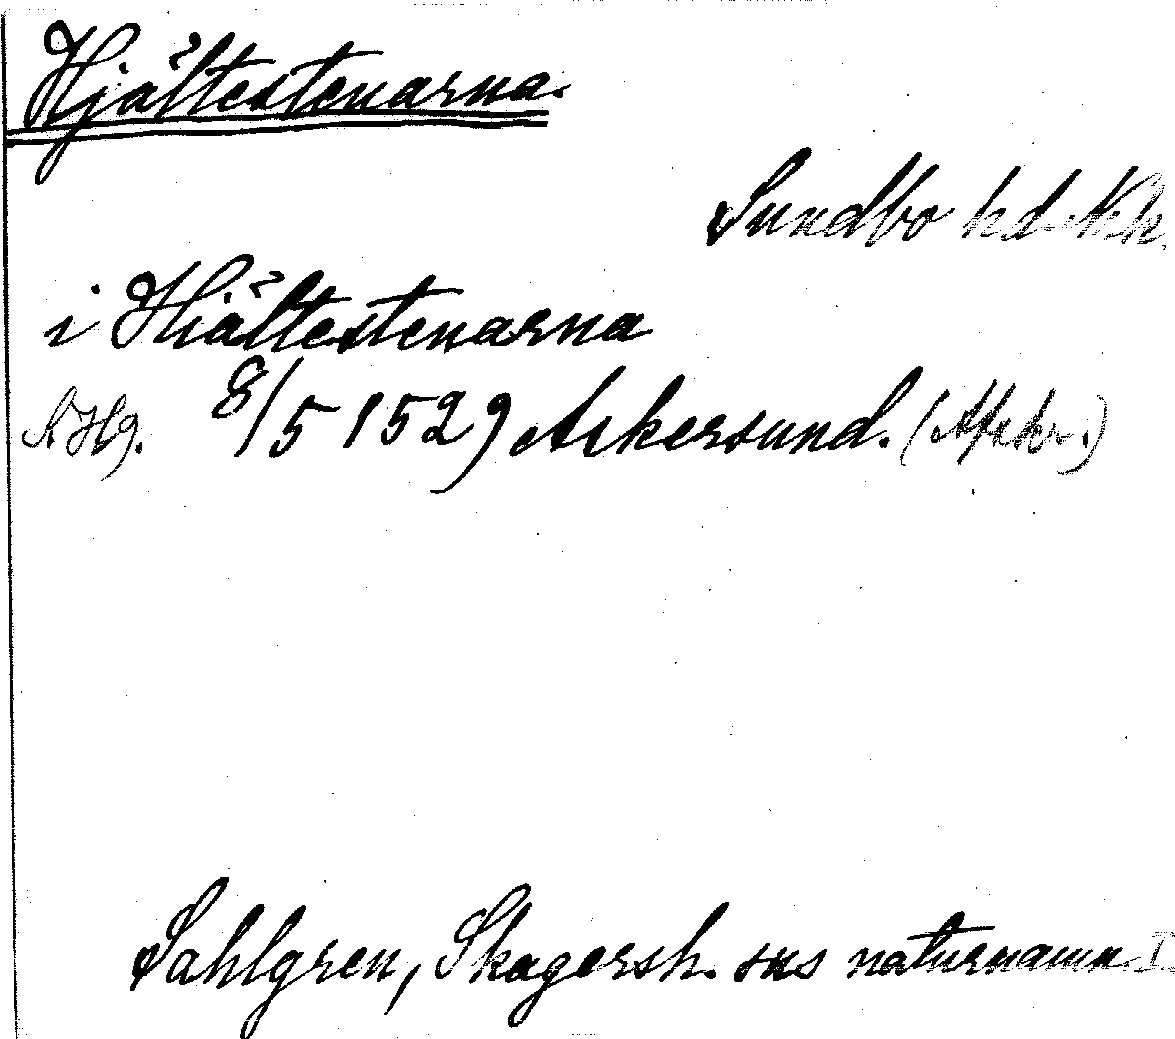 Hjältestenarna.
Sundbo hd. Nk.
i Hiältestenarna
8/5 1529 Askersund. (Afskr.)
Sahlgren, Skagersh. sns naturnamn I.